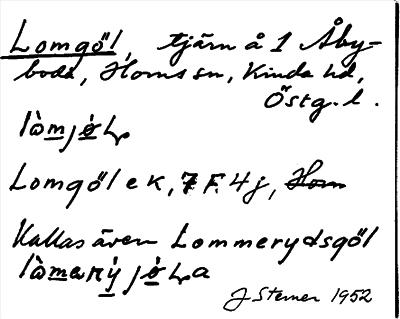 Lomgöl, tjärn å 1 Åby-
boda, Horns sn, Kinda hd,
Östg. l.
Lomgöl ek, 7 F. 4 j, Horn
Kallas även Lommerydsgöl
J Sterner 1952